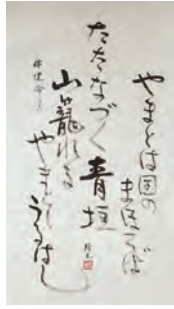 やまとは国の
まほろば
たたなづく青垣
山籠れる
やまとし
うるはし